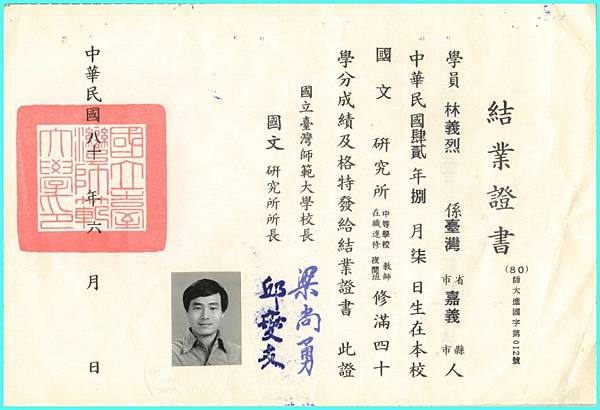 結業證書
(80)師大進國字第012號
學員 林義烈 係臺灣省市嘉義縣市人
中華民國肆貳年捌月柒日生在本校
國文 研究所 中等學校教師在職進修夜間班 修滿四十
學分成績及格特發給結業證書 此證
國立臺灣師範大學校長
梁尚勇
國文 研究所所長
邱燮友
國立臺灣師範大學印
中華民國八十年六月 日